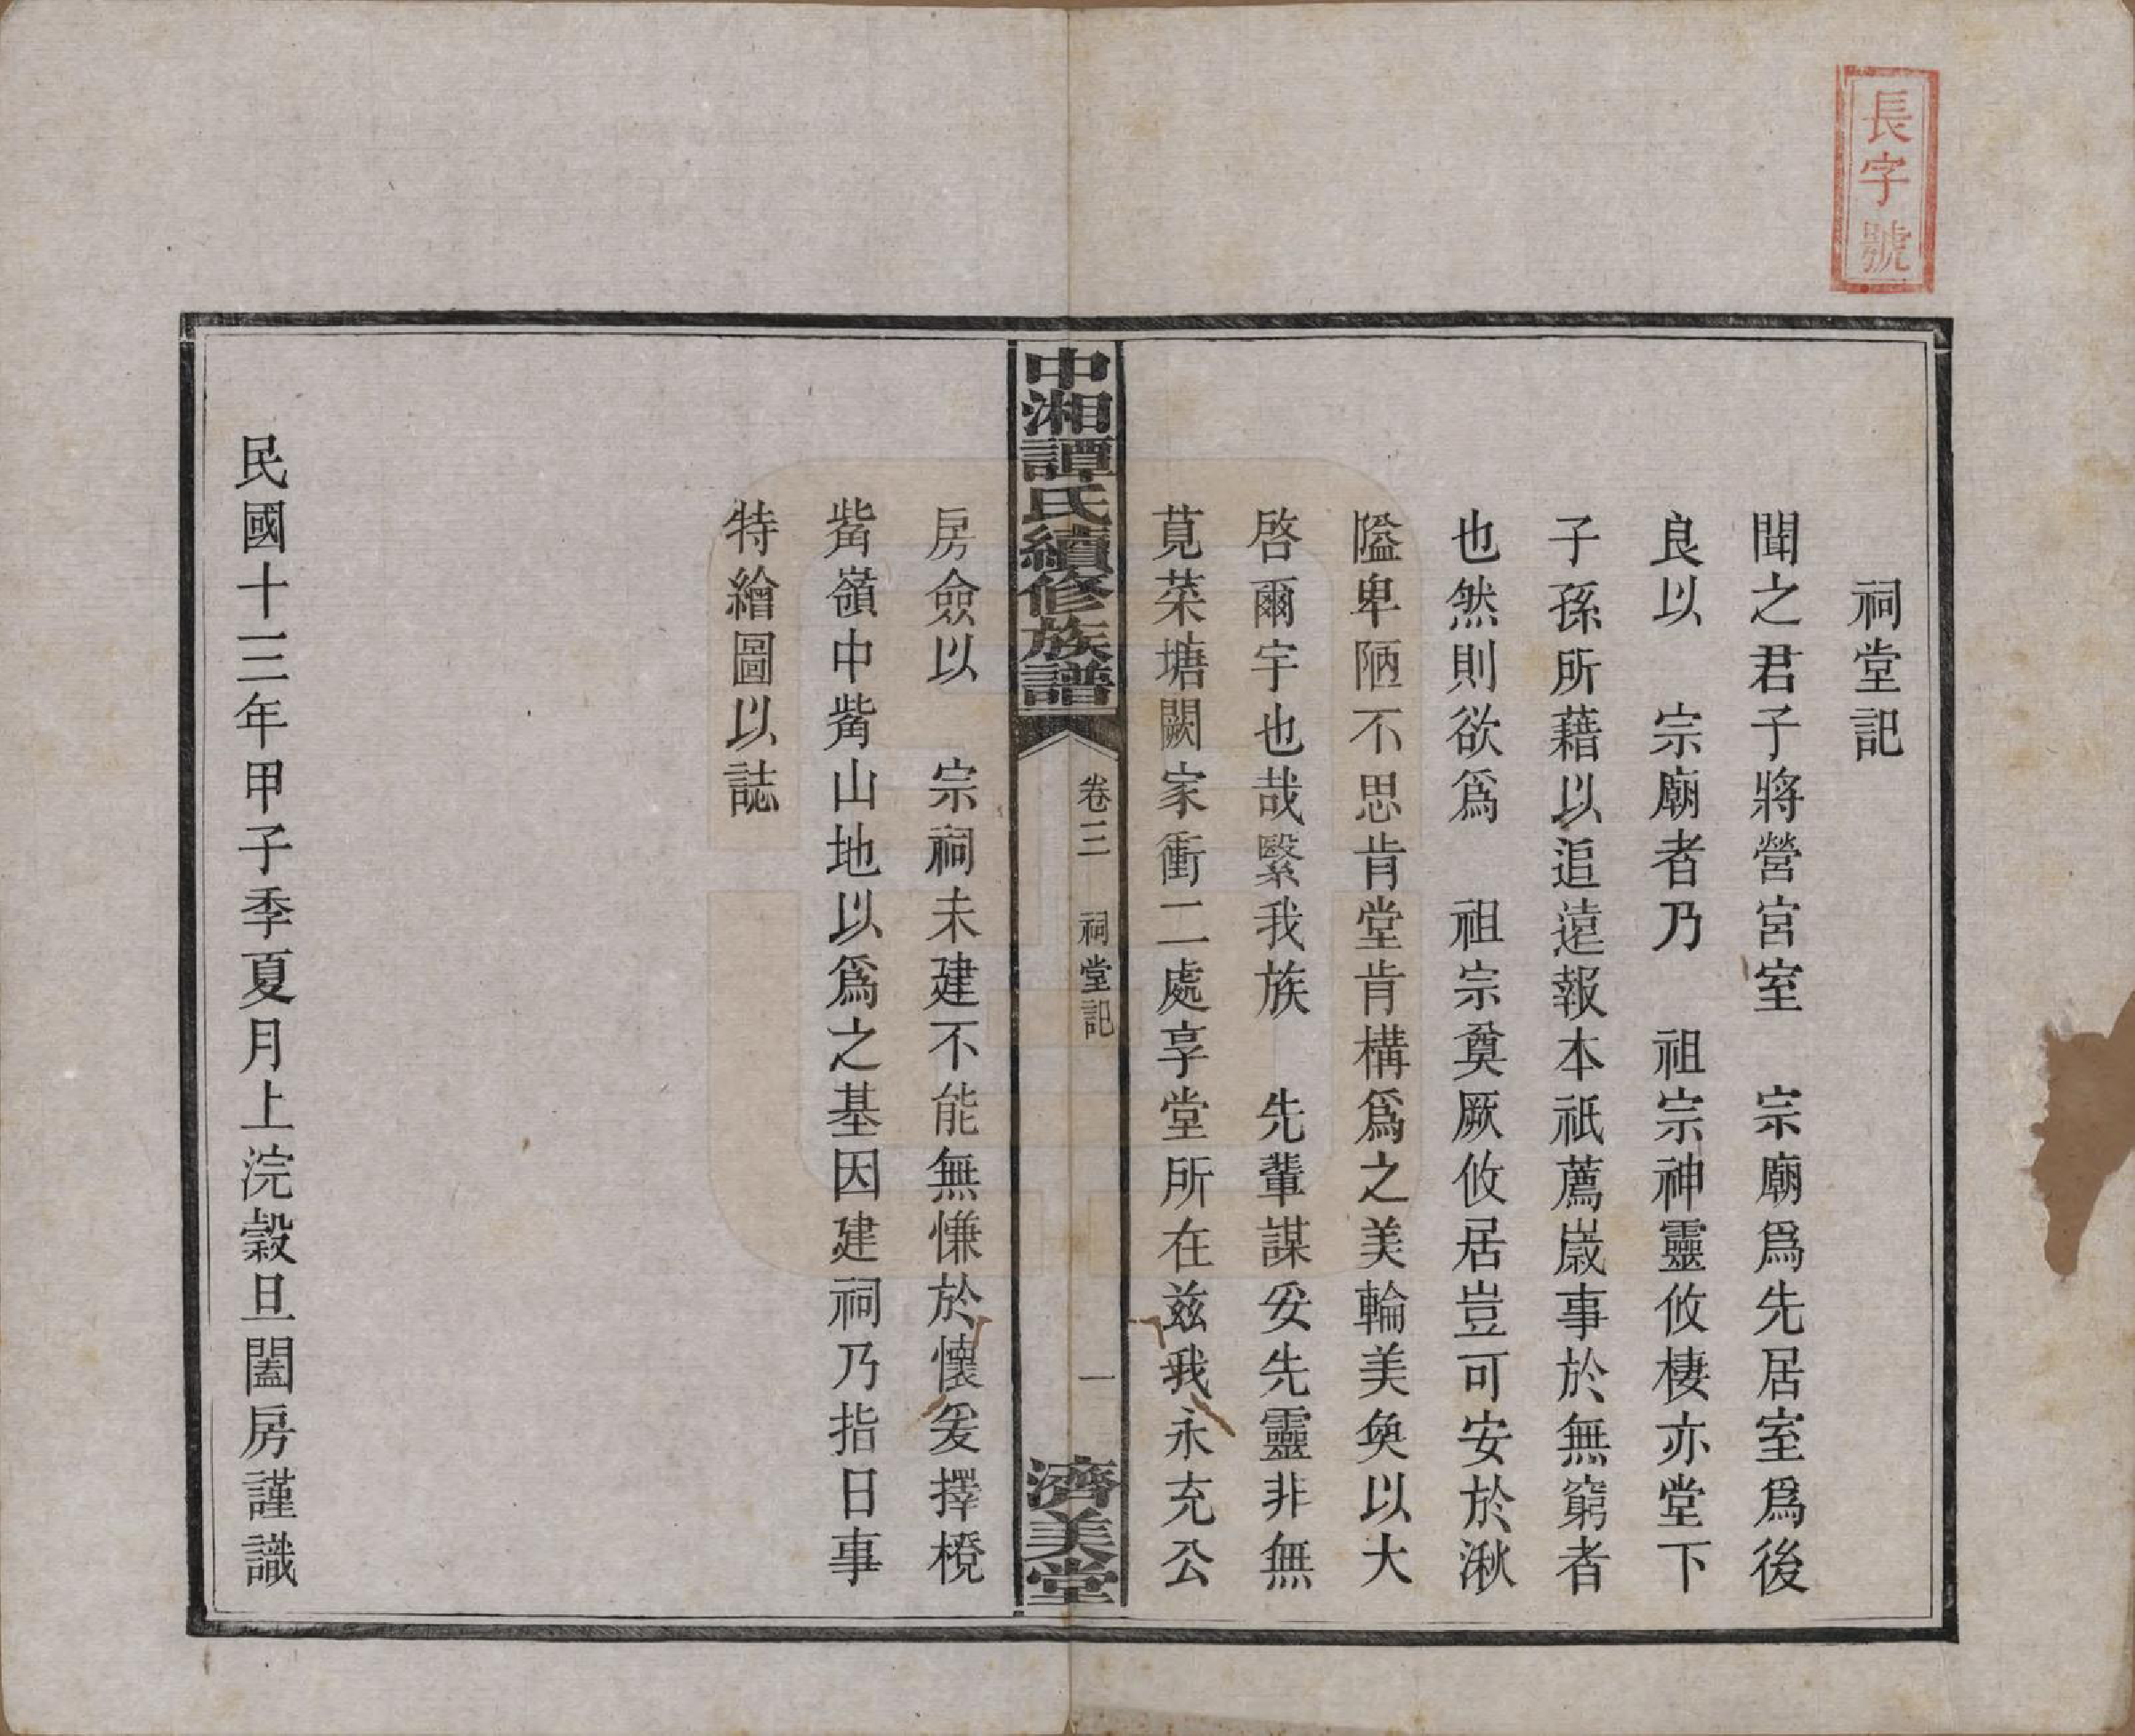 長字號
祠堂記
聞之君子將營宮室　宗廟爲先居室爲後
良以　宗廟者乃　祖宗神靈攸棲亦堂下
子孫所藉以追遠報本祇薦歲事於無窮者
也然則欲爲　祖宗奠厥攸居豈可安於湫
隘卑陋不思肯堂肯構爲之美輪美奐以大
啓爾宇也哉繄我族　先輩謀妥先靈非無
莧菜塘闕家衝二處享堂所在兹我永充公
中湘譚氏續修族譜
卷三　祠堂記　一
濟美堂
房僉以　宗祠未建不能無慊於懷爰擇櫈
觜嶺中觜山地以爲之基因建祠乃指日事
特繪圖以誌
民國十三年甲子季夏月上浣穀旦闔房謹識